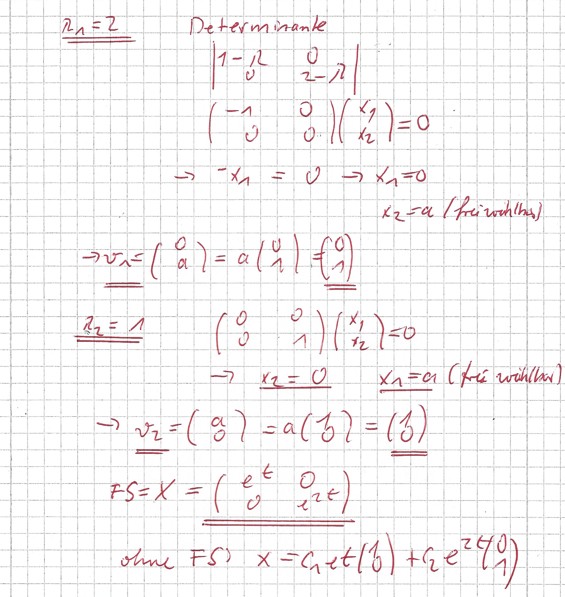 λ₁=2 Determinante
|1-λ 0|
|0 2-λ|
(-1 0) (x₁)
(0 0) (x₂) =0
→ -x₁ = 0 → x₁=0
x₂=a (frei wählbar)
→ v₁= (0 a) = a (0 1) = (0 1)
λ₂= 1 (0 0) (x₁)
(0 1) (x₂) =0
→ x₂ = 0 x₁=a (frei wählbar)
→ v₂ = (a 0) = a (1 0) = (1 0)
FS= X = (e^t 0)
(0 e^2t)
ohne FS) x = c₁ e^t (1 0) + c₂ e^2t (0 1)